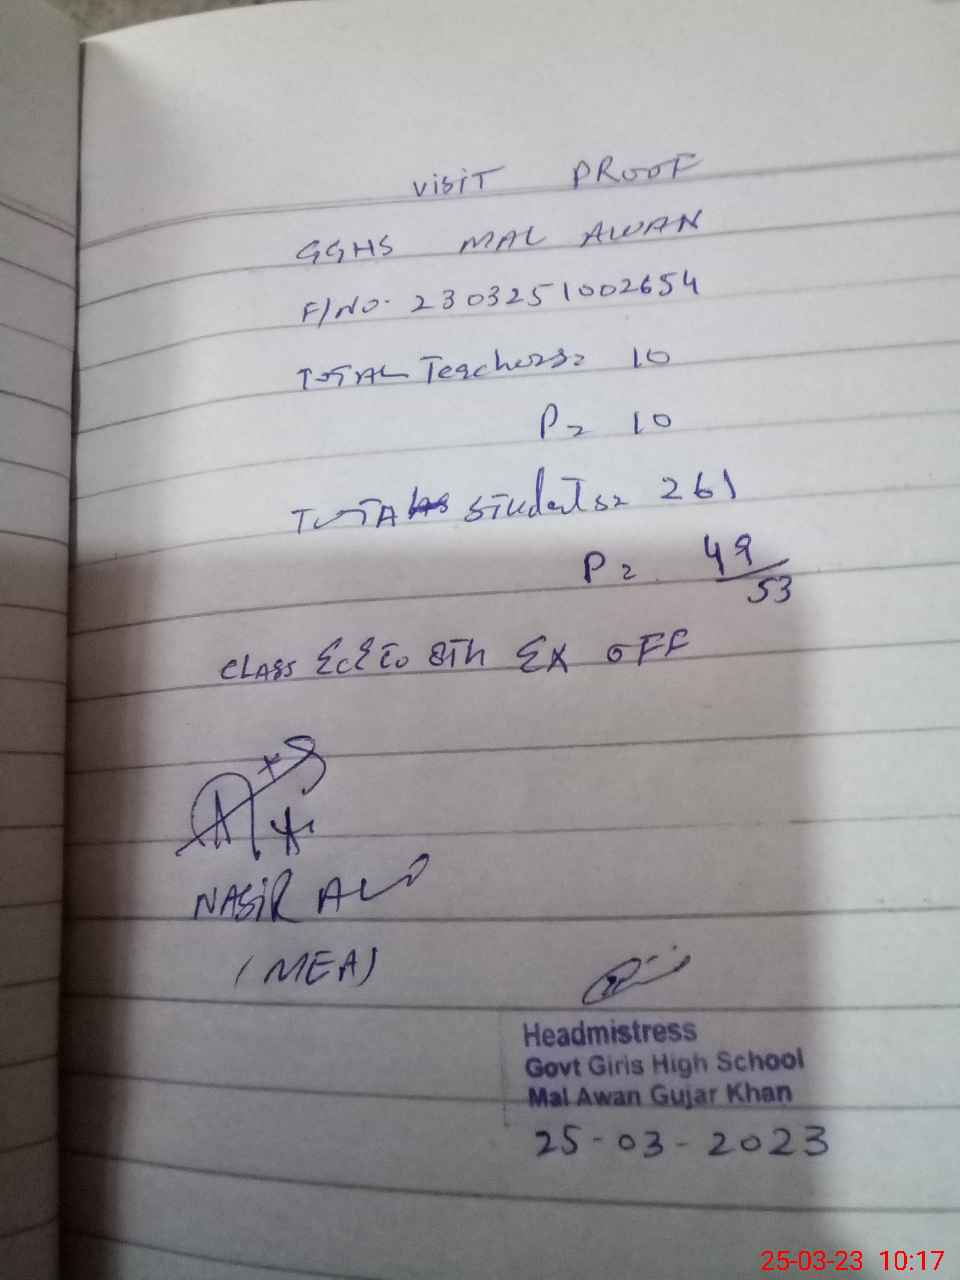 VISIT PROOF
GGHS MAL AWAN
F/NO. 2303251002654
TOTAL Teachers= 10
P= 10
TOTAL students= 261
P= 49/53
CLASS ECE to 8Th EX OFF
NASIR
(MEA)
Headmistress
Govt Girls High School
Mal Awan Gujar Khan
25-03-2023
25-03-23 10:17